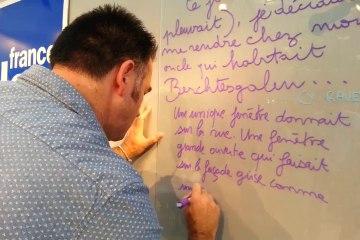 france
ble
le f
pleuvait), je décidai
me rendre chez mon
oncle qui habitait
Berchtesgaden...
Une unique fenêtre donnait
sur la rue. Une fenêtre
grande ouverte qui faisait
sur la façade grise comme